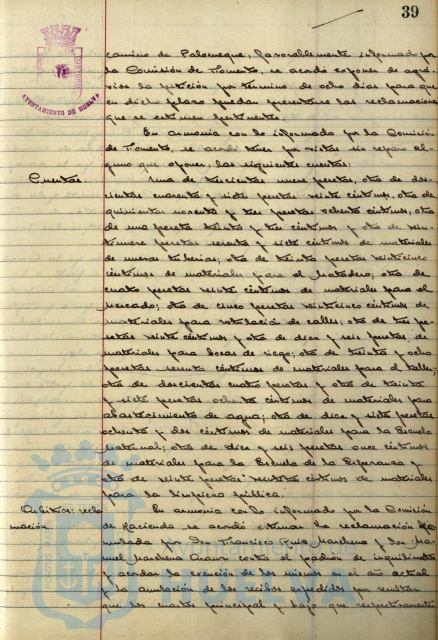 39
AYUNTAMIENTO DE HUELVA
camino de Palomeque, favorablemente informado por
la Comisión de Fomento, se acordó exponer de agra-
vios la petición por término de ocho días para que
en dicho plazo puedan presentarse las reclamaciones
que se estimen pertinentes.
En armonía con lo informado por la Comisión
de Fomento, se acordó tener por vistas sin reparo al-
guno que oponer, las siguientes cuentas:
Cuentas. Una de trescientas nueve pesetas, otra de dos-
cientas cuarenta y siete pesetas veinte céntimos, otra de
quinientas noventa y tres pesetas ochenta céntimos, otra
de una peseta treinta y tres céntimos y otra de vein-
tinueve pesetas sesenta y siete céntimos de materiales
de nuevas tuberías; otra de treinta pesetas veinticinco
céntimos de materiales para el Matadero; otra de
cuatro pesetas veinte céntimos de materiales para el
Mercado; otra de cinco pesetas veinticinco céntimos de
materiales para rotulación de calles; otra de tres pe-
setas veinte céntimos y otra de diez y seis pesetas, de
materiales para bocas de riego; otra de treinta y ocho
pesetas sesenta céntimos de materiales para el taller;
otra de doscientas cuatro pesetas y otra de treinta
y siete pesetas ochenta céntimos de materiales para
abastecimiento de agua; otra de diez y siete pesetas
ochenta y dos céntimos de materiales para la Escuela
Maternal; otra de diez y seis pesetas once céntimos
de materiales para la Escuela de la Esperanza y
otra de veinte pesetas setenta céntimos de materiales
para la limpieza pública.
Arbitrios: recla- En armonía con lo informado por la Comisión
mación. de Hacienda se acordó estimar la reclamación for-
mulada por Don Francisco Ruiz Marchena y Don Ma-
nuel Marchena contra el padrón de inquilinato
y acordar la exención de los mismos en el año actual
y la anulación de los recibos expedidos por resultar
que los cuartos principal y bajo que respectivamente